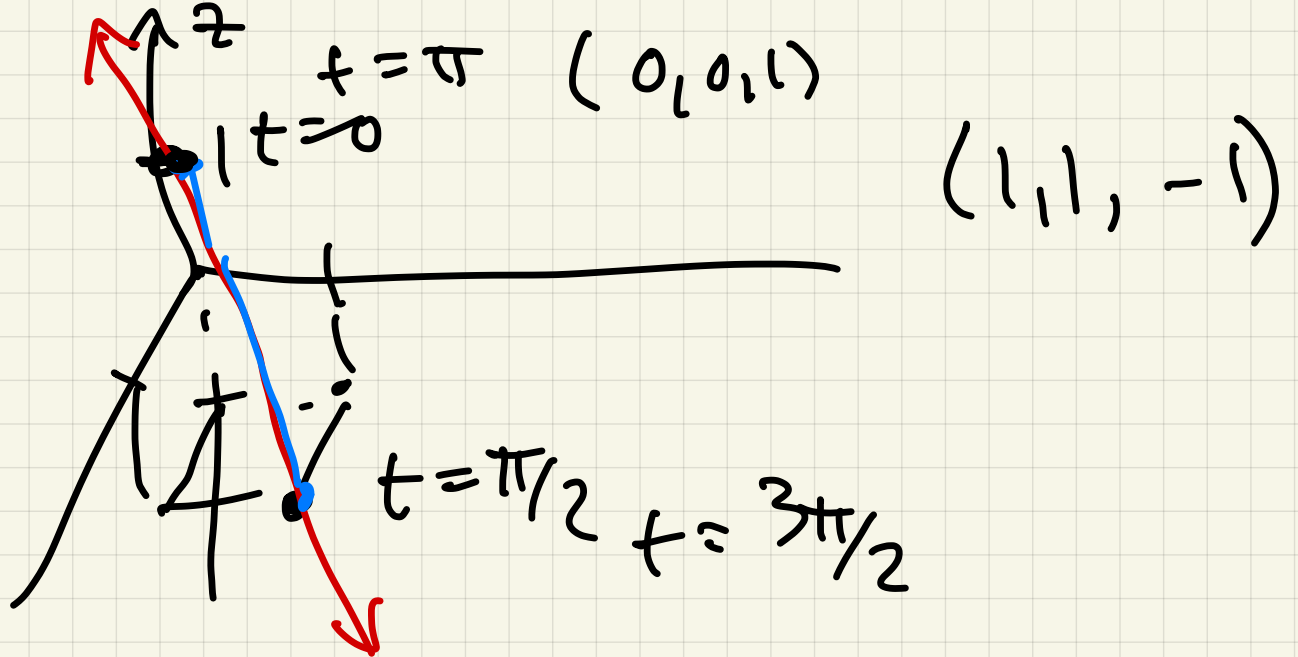 z
t = π (0, 0, 1)
1 t = 0
(1, 1, -1)
1
4
t = π/2
t = 3π/2